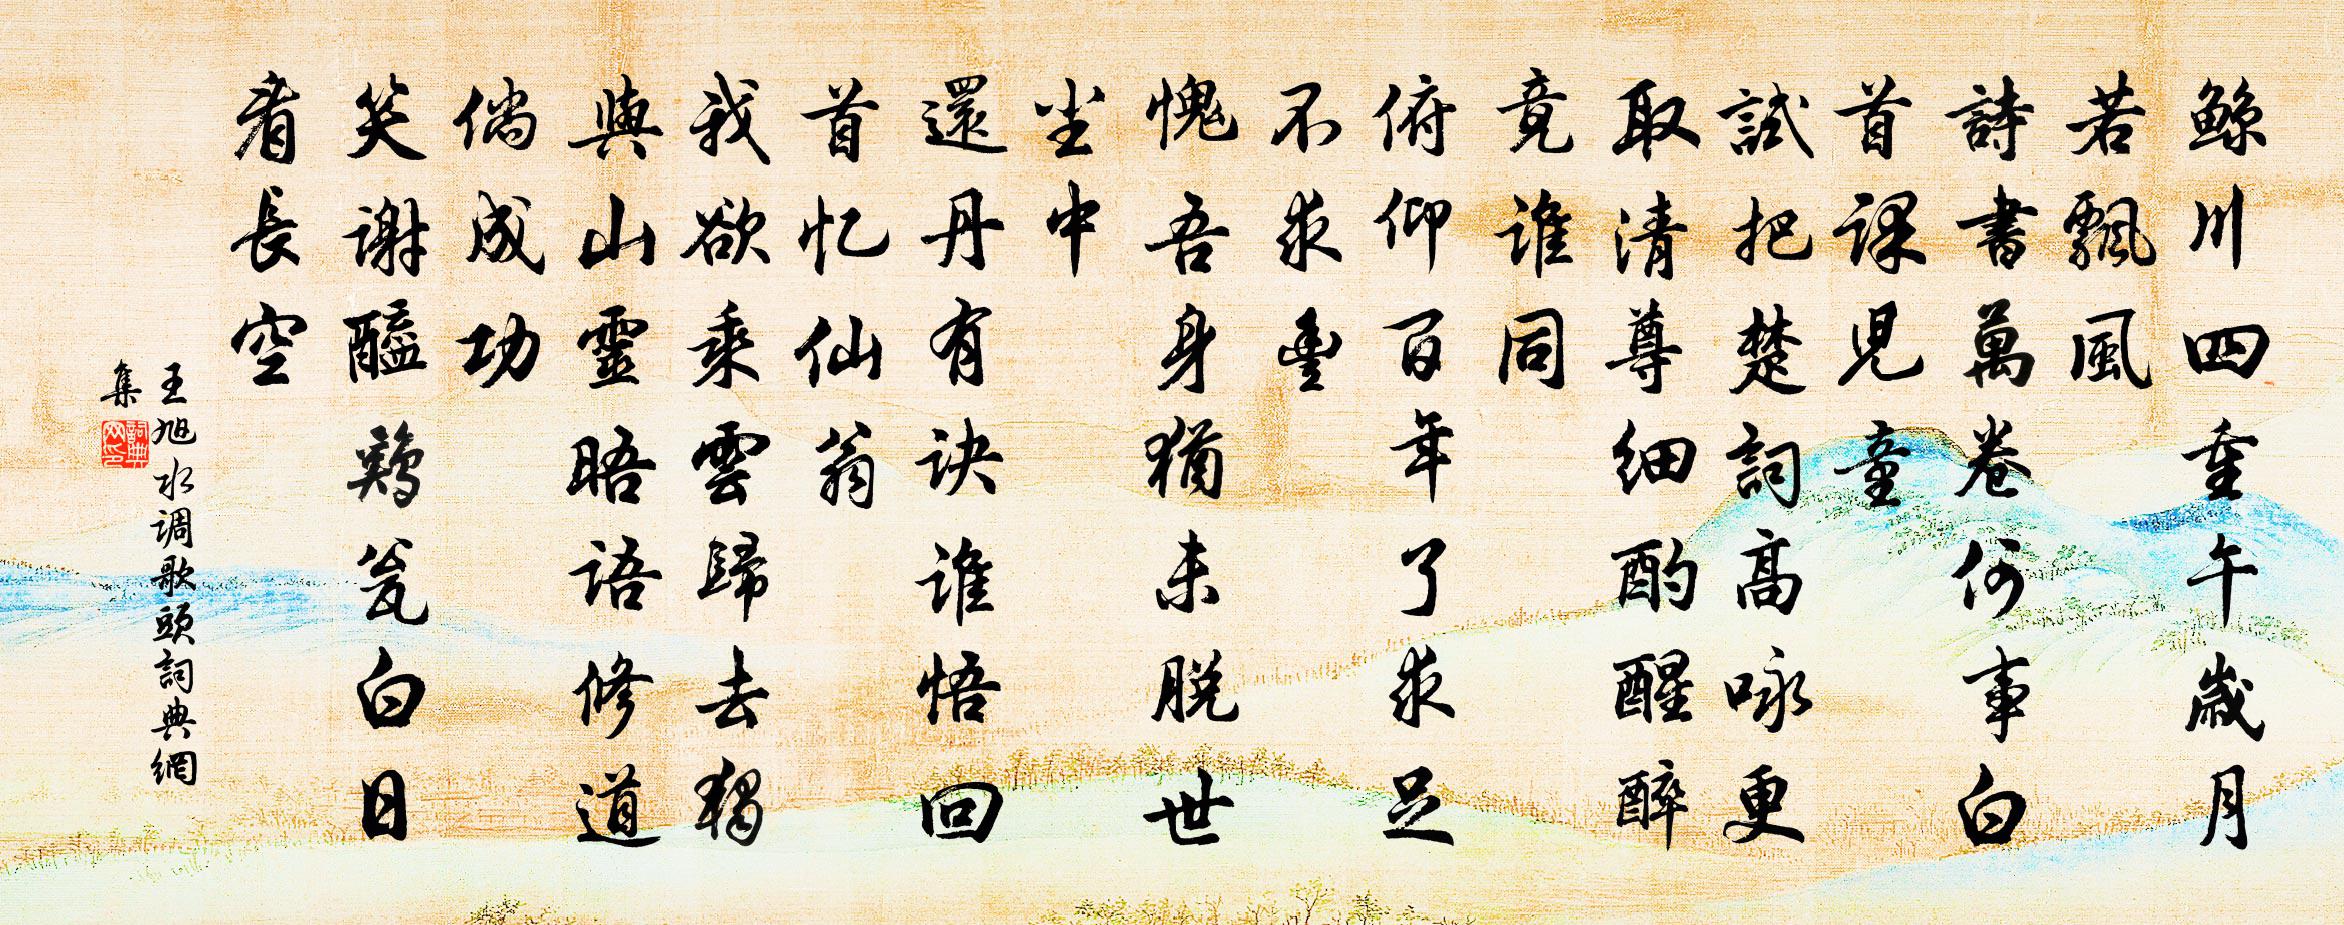 鯨川四重午歲月
若飄風
詩書萬卷何事白
首課兒童
試把楚詞高咏更
取清尊細酌醒醉
竟誰同
俯仰百年了求足
不求豐
愧吾身猶未脱世
坐中
還丹有訣誰悟回
首忆仙翁
我欲乘雲歸去獨
與山靈晤語修道
倘成功
笑謝醯鷄瓮白日
看長空
王旭水调歌頭詞典網
集
詞典網印